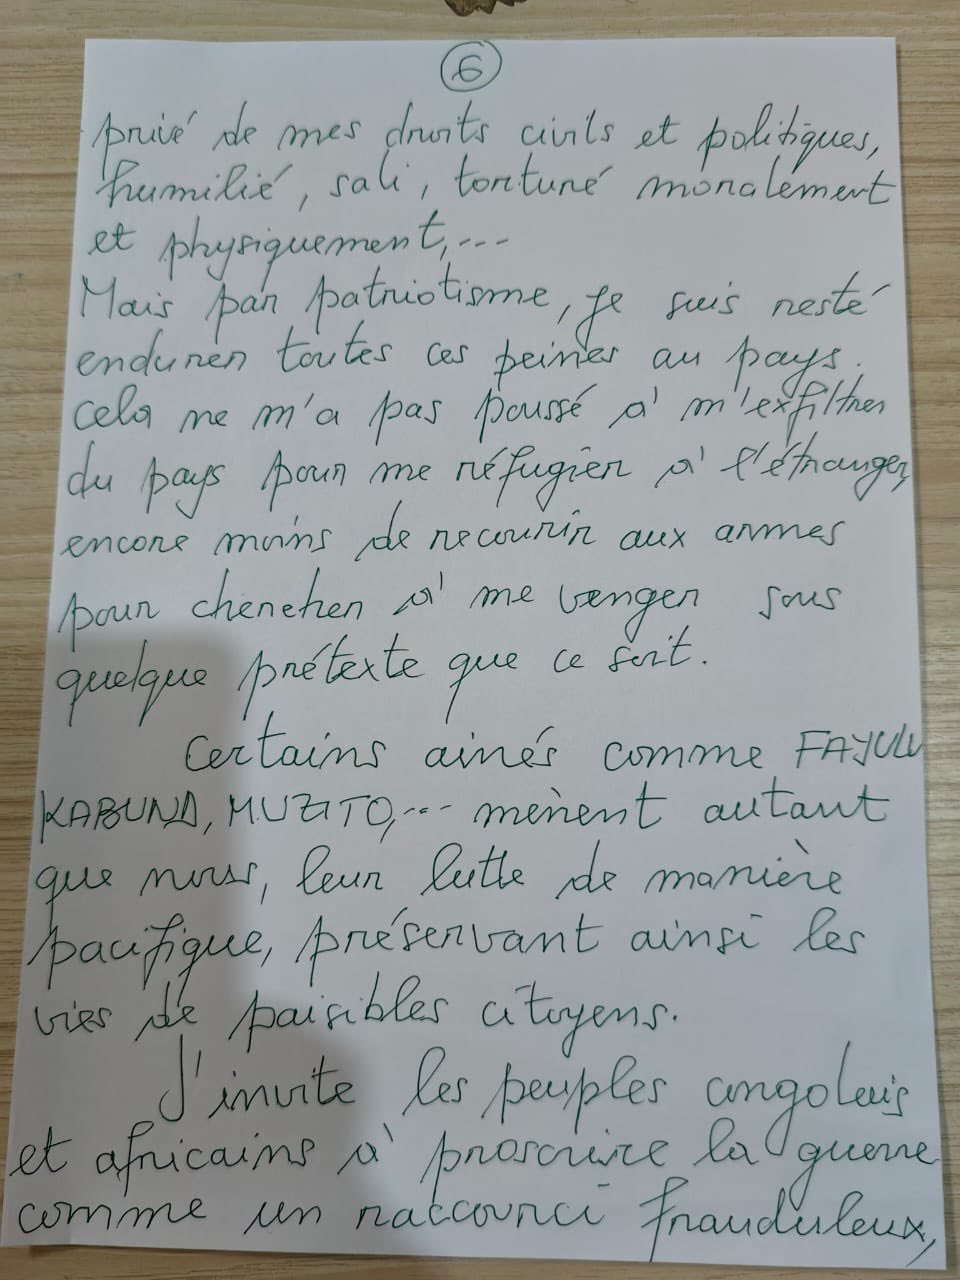 6
privé de mes droits civils et politiques,
humilié, sali, torturé moralement
et physiquement,...
Mais par patriotisme, je suis resté
endurer toutes ces peines au pays.
Cela ne m'a pas poussé à m'exfiltrer
du pays pour me réfugier à l'étranger,
encore moins de recourir aux armes
pour chercher à me venger sous
quelque prétexte que ce soit.
Certains ainés comme FAYULU
KABUND, MUZITO,... mènent autant
que nous, leur lutte de manière
pacifique, préservant ainsi les
vies de paisibles citoyens.
J'invite les peuples congolais
et africains à proscrire la guerre
comme un raccourci frauduleux,